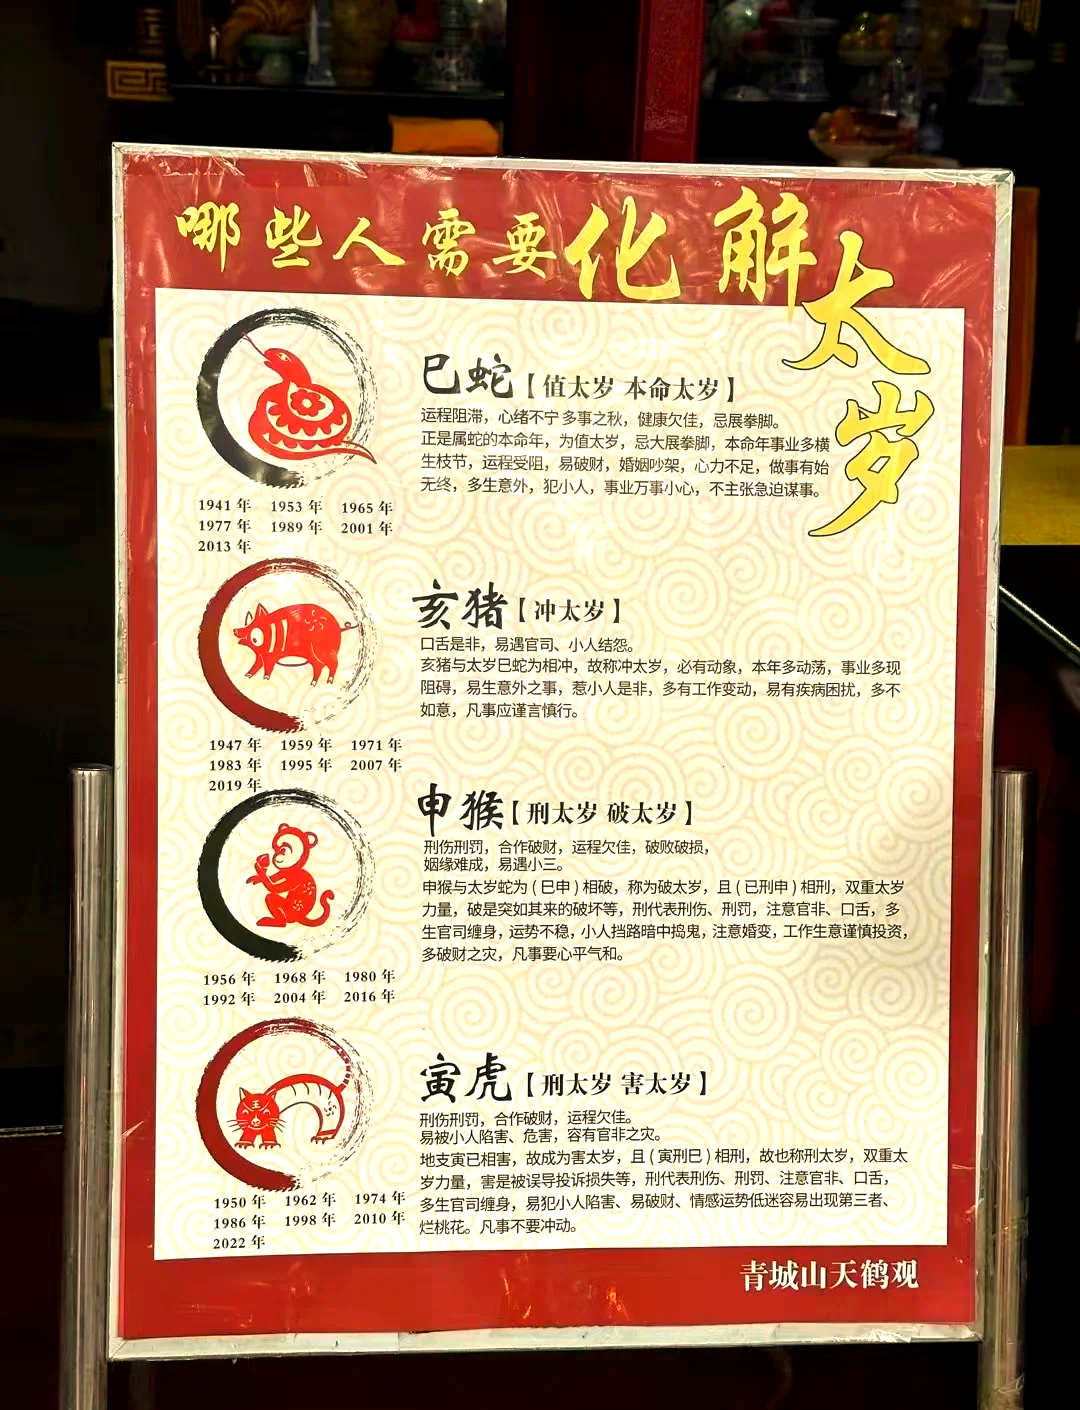 哪些人需要化解太岁
巳蛇【值太岁 本命太岁】
运程阻滞，心绪不宁多事之秋，健康欠佳，忌展拳脚。
正是属蛇的本命年，为值太岁，忌大展拳脚，本命年事业多横
生枝节，运程受阻，易破财，婚姻吵架，心力不足，做事有始
无终，多生意外，犯小人，事业万事小心，不主张急迫谋事。
1941 年 1953 年 1965 年
1977 年 1989 年 2001 年
2013 年
亥猪【冲太岁】
口舌是非，易遇官司、小人结怨。
亥猪与太岁巳蛇为相冲，故称冲太岁，必有动象，本年多动荡，事业多现
阻碍，易生意外之事，惹小人是非，多有工作变动，易有疾病困扰，多不
如意，凡事应谨言慎行。
1947 年 1959 年 1971 年
1983 年 1995 年 2007 年
2019 年
申猴【刑太岁 破太岁】
刑伤刑罚，合作破财，运程欠佳，破败破损，
姻缘难成，易遇小三。
申猴与太岁蛇为（巳申）相破，称为破太岁，且（已刑申）相刑，双重太岁
力量，破是突如其来的破坏等，刑代表刑伤、刑罚，注意官非、口舌，多
生官司缠身，运势不稳，小人挡路暗中捣鬼，注意婚变，工作生意谨慎投资，
多破财之灾，凡事要心平气和。
1956 年 1968 年 1980 年
1992 年 2004 年 2016 年
寅虎【刑太岁 害太岁】
刑伤刑罚，合作破财，运程欠佳。
易被小人陷害、危害，容有官非之灾。
地支寅已相害，故成为害太岁，且（寅刑巳）相刑，故也称刑太岁，双重太
岁力量，害是被误导投诉损失等，刑代表刑伤、刑罚、注意官非、口舌，
多生官司缠身，易犯小人陷害、易破财、情感运势低迷容易出现第三者、
烂桃花。凡事不要冲动。
1950 年 1962 年 1974 年
1986 年 1998 年 2010 年
2022 年
青城山天鹤观